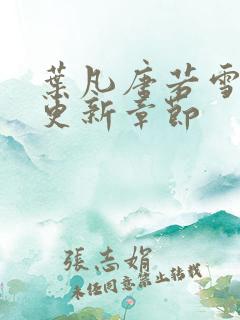 葉凡唐若雪
更新章節
張志娟
未经同意禁止转载